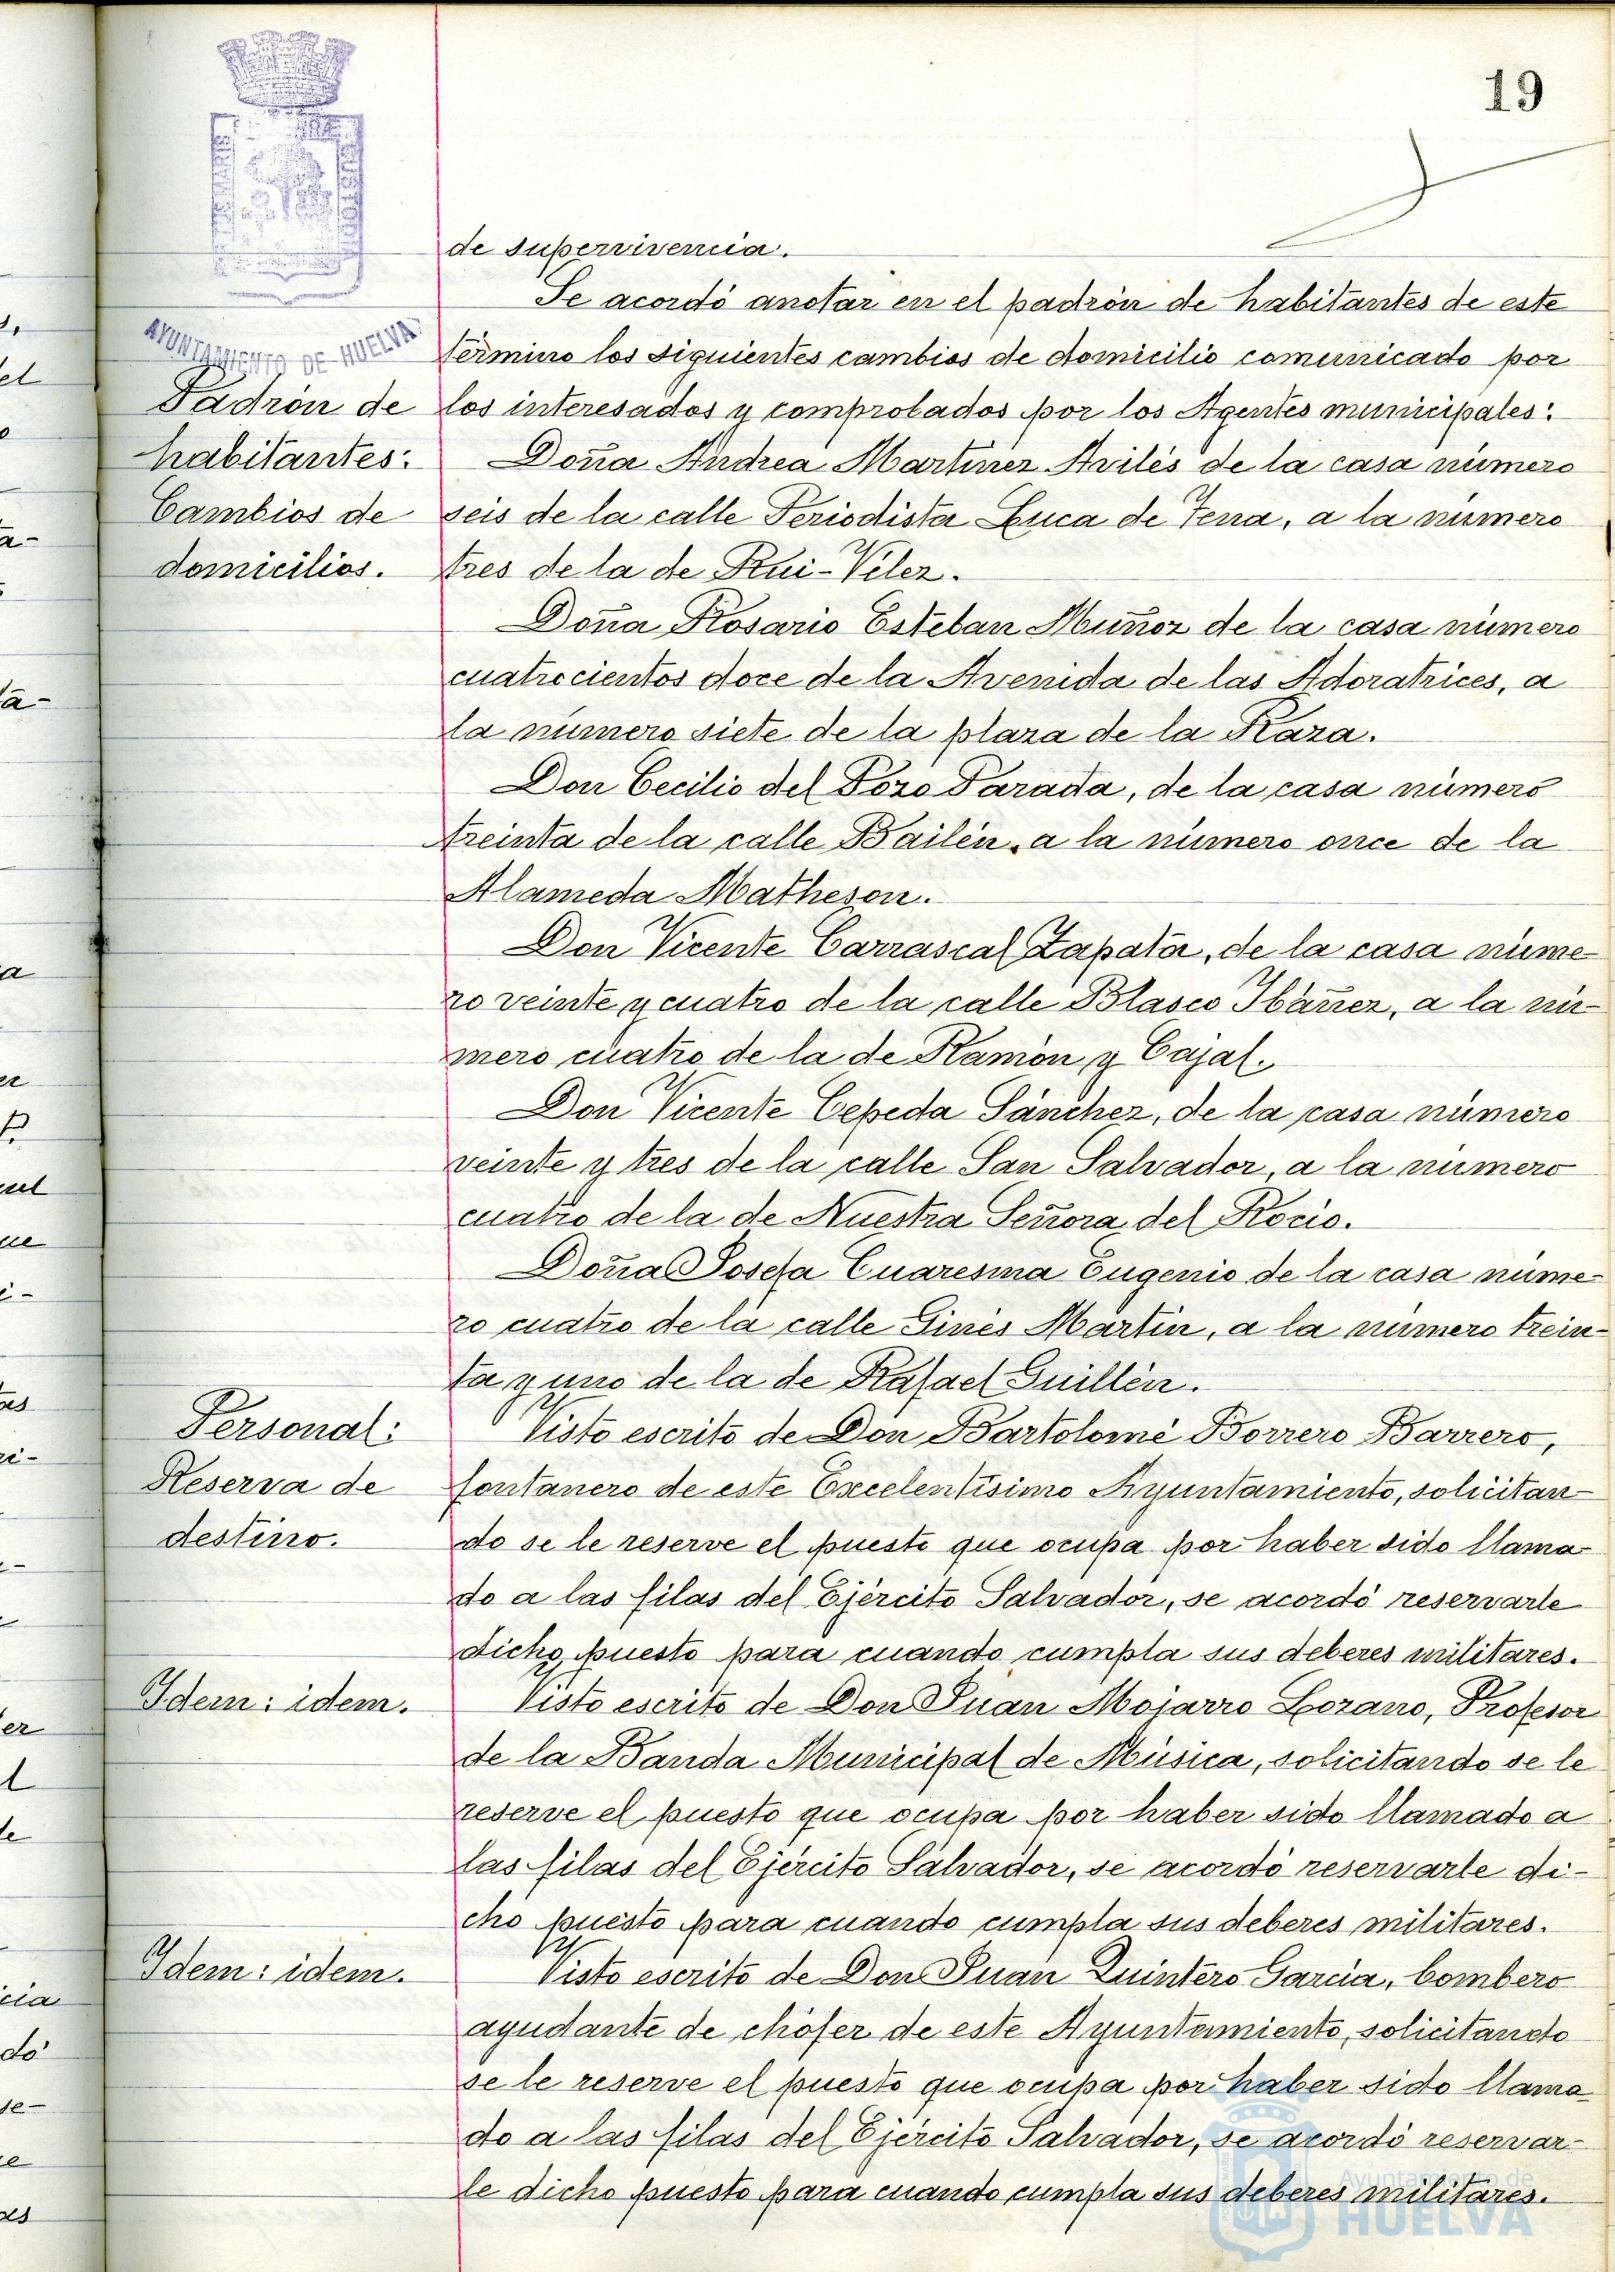 19
AYUNTAMIENTO DE HUELVA
de supervivencia.
Se acordó anotar en el padrón de habitantes de este
término los siguientes cambios de domicilio comunicado por
Padrón de
los interesados y comprobados por los Agentes municipales:
habitantes:
Doña Andrea Martinez Avilés de la casa número
Cambios de
seis de la calle Periodista Luca de Tena, a la número
domicilios.
tres de la de Rui-Vélez.
Doña Rosario Esteban Muñoz de la casa número
cuatrocientos doce de la Avenida de las Adoratrices, a
la número siete de la plaza de la Raza.
Don Cecilio del Pozo Parada, de la casa número
treinta de la calle Bailén, a la número once de la
Alameda Matheson.
Don Vicente Carrascal Zapata, de la casa núme-
ro veinte y cuatro de la calle Blasco Ibáñez, a la nú-
mero cuatro de la de Ramón y Cajal.
Don Vicente Cepeda Sánchez, de la casa número
veinte y tres de la calle San Salvador, a la número
cuatro de la de Nuestra Señora del Rocio.
Doña Josefa Cuaresma Eugenio de la casa núme-
ro cuatro de la calle Ginés Martín, a la número trein-
ta y uno de la de Rafael Guillén.
Personal:
Visto escrito de Don Bartolomé Borrero Barrero,
Reserva de
fontanero de este Excelentísimo Ayuntamiento, solicitan-
destino.
do se le reserve el puesto que ocupa por haber sido llama-
do a las filas del Ejército Salvador, se acordó reservarle
dicho puesto para cuando cumpla sus deberes militares.
Idem: idem.
Visto escrito de Don Juan Mojarro Lozano, Profesor
de la Banda Municipal de Música, solicitando se le
reserve el puesto que ocupa por haber sido llamado a
las filas del Ejército Salvador, se acordó reservarle di-
cho puesto para cuando cumpla sus deberes militares.
Idem: idem.
Visto escrito de Don Juan Quintero Garcia, bombero
ayudante de chófer de este Ayuntamiento, solicitando
se le reserve el puesto que ocupa por haber sido llama-
do a las filas del Ejército Salvador, se acordó reservar-
le dicho puesto para cuando cumpla sus deberes militares.
Ayuntamiento de
HUELVA